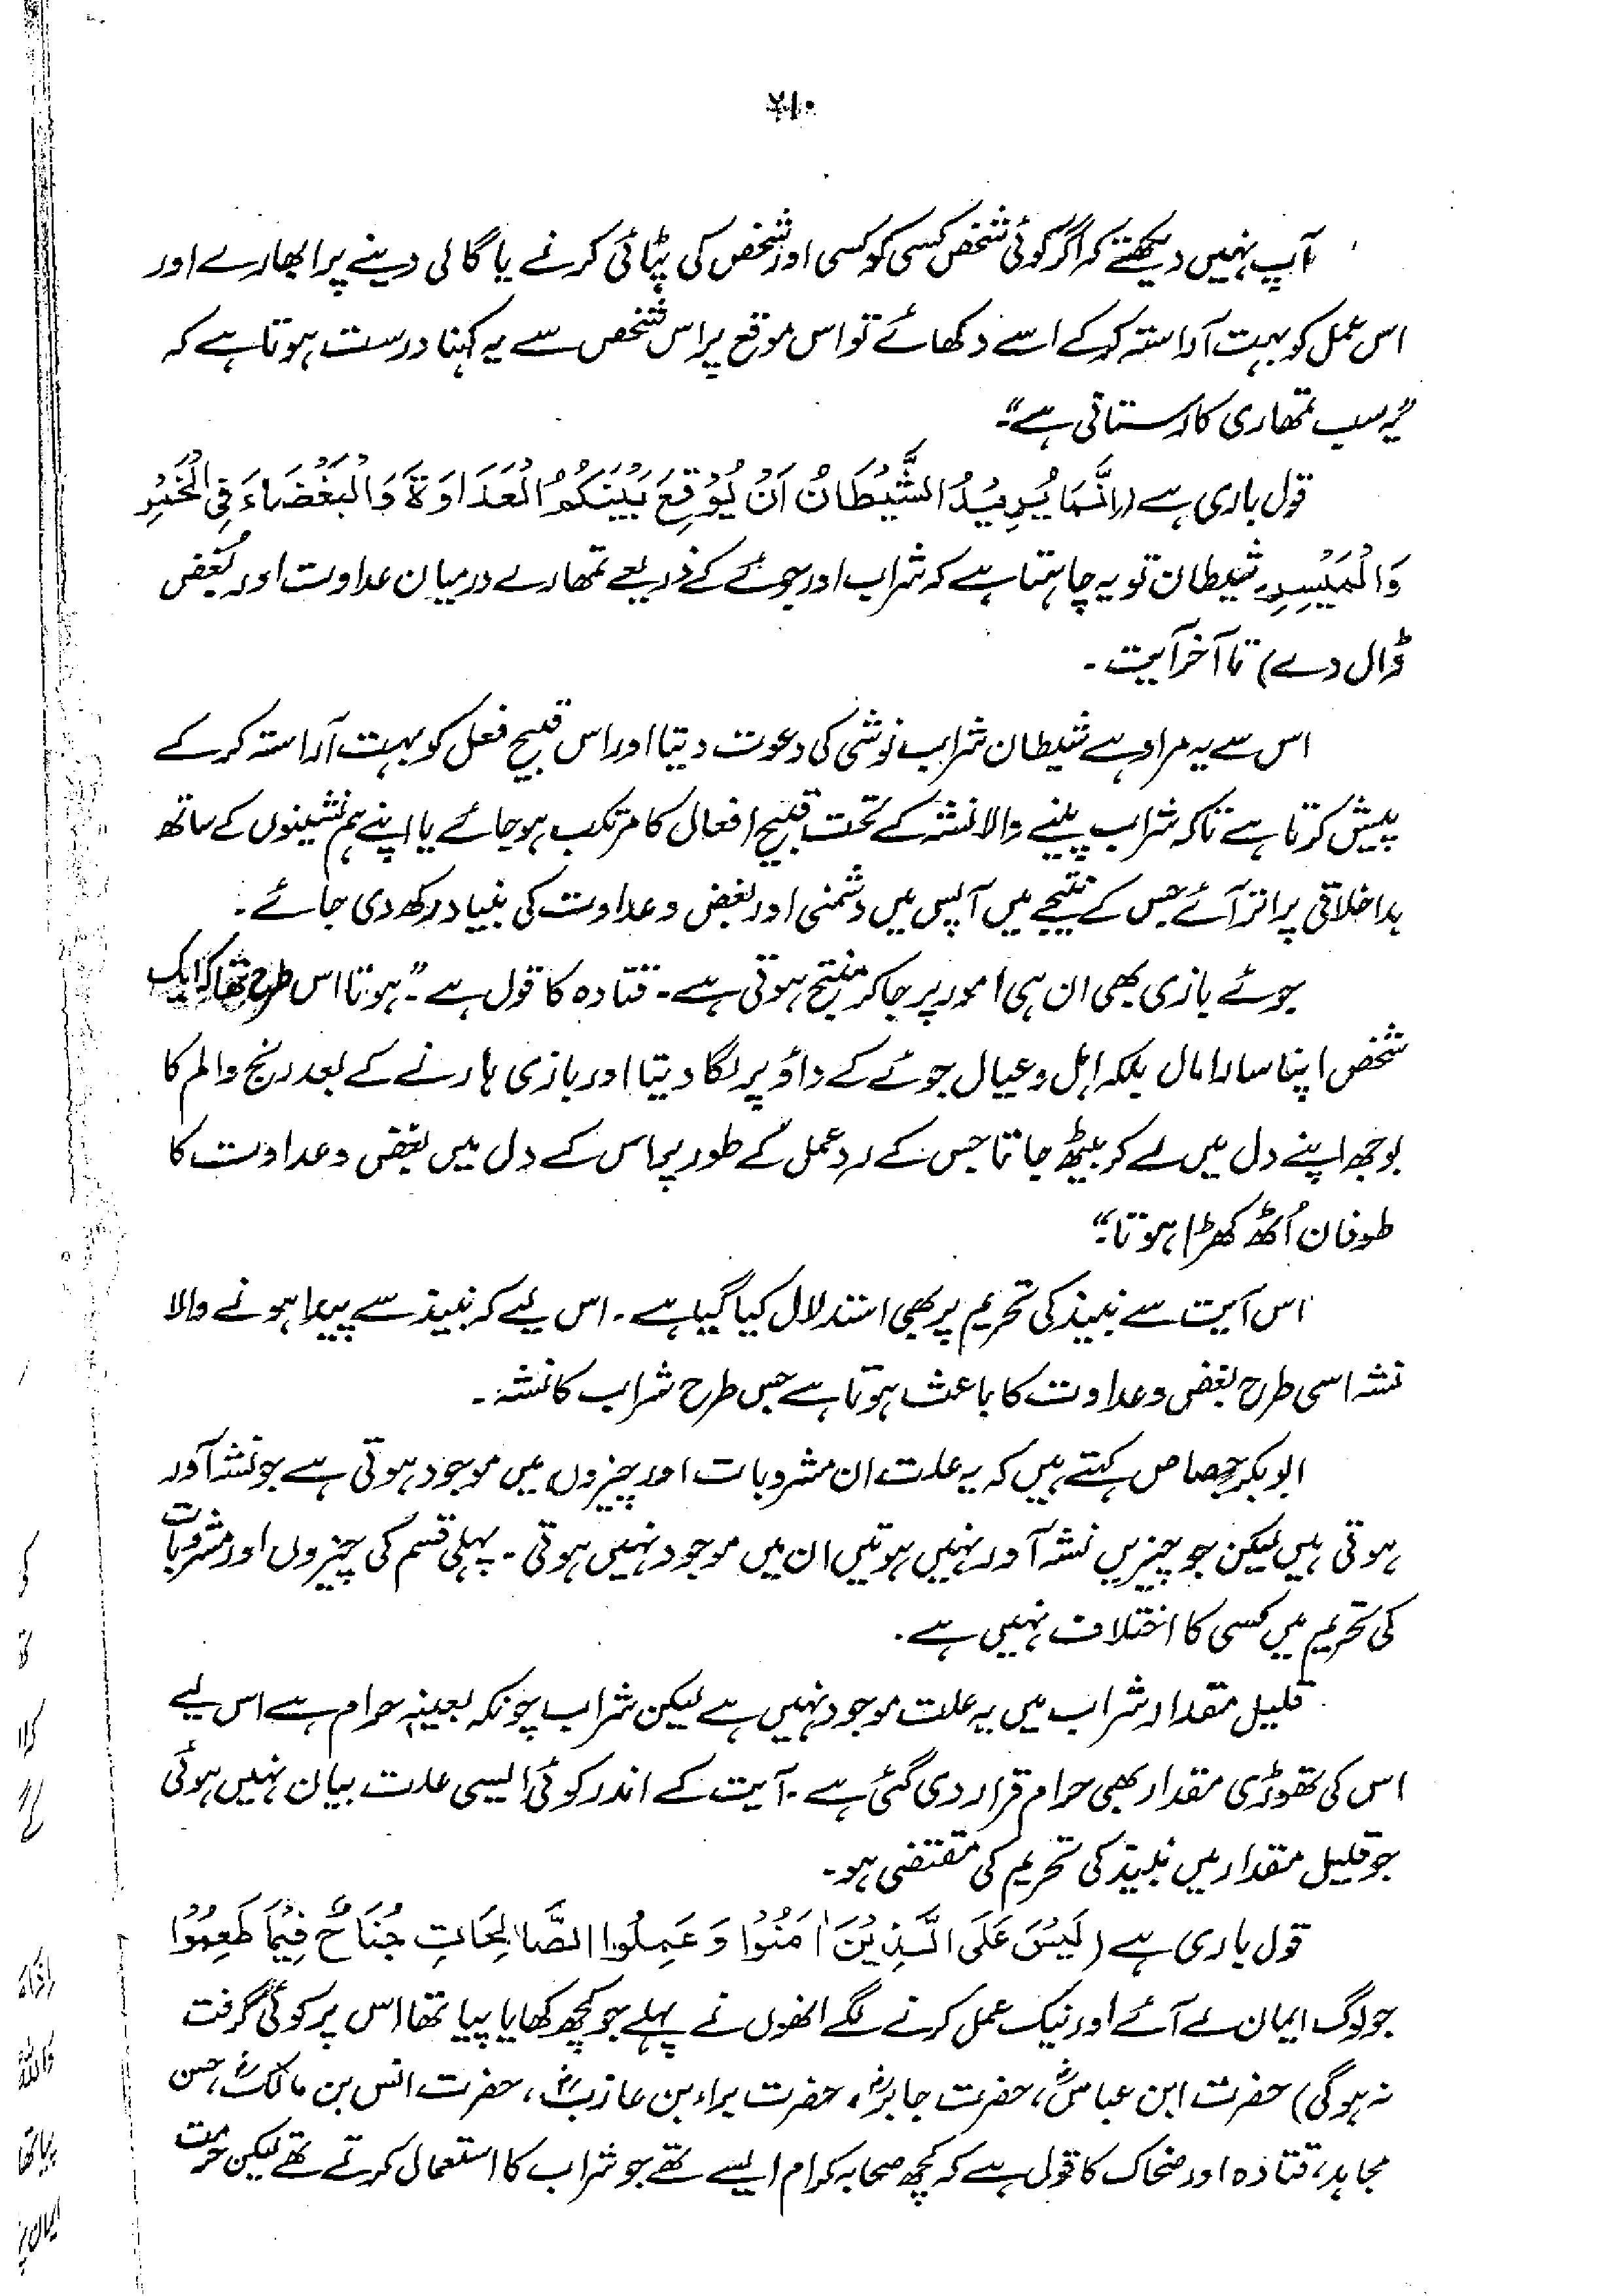 ۷۱۰
آپ نہیں دیکھتے کہ اگر کوئی شخص کسی کو کسی اور شخص کی پٹائی کرنے یا گالی دینے پر ابھارے اور
اس عمل کو بہت آراستہ کر کے اسے دکھائے تو اس موقع پر اس شخص سے یہ کہنا درست ہوتا ہے کہ
”یہ سب تمھاری کارستانی ہے“۔
قول باری ہے (اِنَّمَا يُرِيْدُ الشَّيْطَانُ اَنْ يُوْقِعَ بَيْنَكُمُ الْعَدَاوَةَ وَالْبَغْضَاءَ فِي الْخَمْرِ
وَالْمَيْسِرِ شیطان تو یہ چاہتا ہے کہ شراب اور جوئے کے ذریعے تمھارے درمیان عداوت اور بُغض
ڈال دے) تا آخر آیت۔
اس سے یہ مراد ہے شیطان شراب نوشی کی دعوت دیتا اور اس قبیح فعل کو بہت آراستہ کر کے
پیش کرتا ہے تاکہ شراب پینے والا نشہ کے تحت قبیح افعال کا مرتکب ہو جائے یا اپنے ہم نشینوں کے ساتھ
بداخلاقی پر اتر آئے جس کے نتیجے میں آپس میں دشمنی اور بغض و عداوت کی بنیاد رکھ دی جائے۔
جوئے بازی بھی ان ہی امور پر جا کر منتج ہوتی ہے۔ قتادہ کا قول ہے۔ ”ہوتا اس طرح تھا کہ ایک
شخص اپنا سارا مال بلکہ اہل و عیال جوئے کے داؤ پر لگا دیتا اور بازی ہارنے کے بعد رنج و الم کا
بوجھ اپنے دل میں لے کر بیٹھ جاتا جس کے ردعمل کے طور پر اس کے دل میں بغض و عداوت کا
طوفان اُٹھ کھڑا ہوتا۔“
اس آیت سے نبیذ کی تحریم پر بھی استدلال کیا گیا ہے۔ اس لیے کہ نبیذ سے پیدا ہونے والا
نشہ اسی طرح بغض و عداوت کا باعث ہوتا ہے جس طرح شراب کا نشہ۔
ابوبکر جصاص کہتے ہیں کہ یہ علت ان مشروبات اور چیزوں میں موجود ہوتی ہے جو نشہ آور
ہوتی ہیں لیکن جو چیزیں نشہ آور نہیں ہوتیں ان میں موجود نہیں ہوتی۔ پہلی قسم کی چیزوں اور مشروبات
کی تحریم میں کسی کا اختلاف نہیں ہے۔
قلیل مقدار شراب میں یہ علت موجود نہیں ہے لیکن شراب چونکہ بعینہٖ حرام ہے اس لیے
اس کی تھوڑی مقدار بھی حرام قرار دی گئی ہے۔ آیت کے اندر کوئی ایسی علت بیان نہیں ہوئی
جو قلیل مقدار میں نبیذ کی تحریم کی مقتضی ہو۔
قول باری ہے (لَيْسَ عَلَى الَّذِيْنَ اٰمَنُوْا وَعَمِلُوا الصَّالِحَاتِ جُنَاحٌ فِيْمَا طَعِمُوْا
جو لوگ ایمان لے آئے اور نیک عمل کرنے لگے انھوں نے پہلے جو کچھ کھایا پیا تھا اس پر کوئی گرفت
نہ ہو گی) حضرت ابن عباسؓ، حضرت جابرؓ، حضرت براء بن عازبؓ، حضرت انس بن مالکؓ، حسن
مجاہد، قتادہ اور ضحاک کا قول ہے کہ کچھ صحابہ کرام ایسے تھے جو شراب کا استعمال کرتے تھے لیکن حرمت